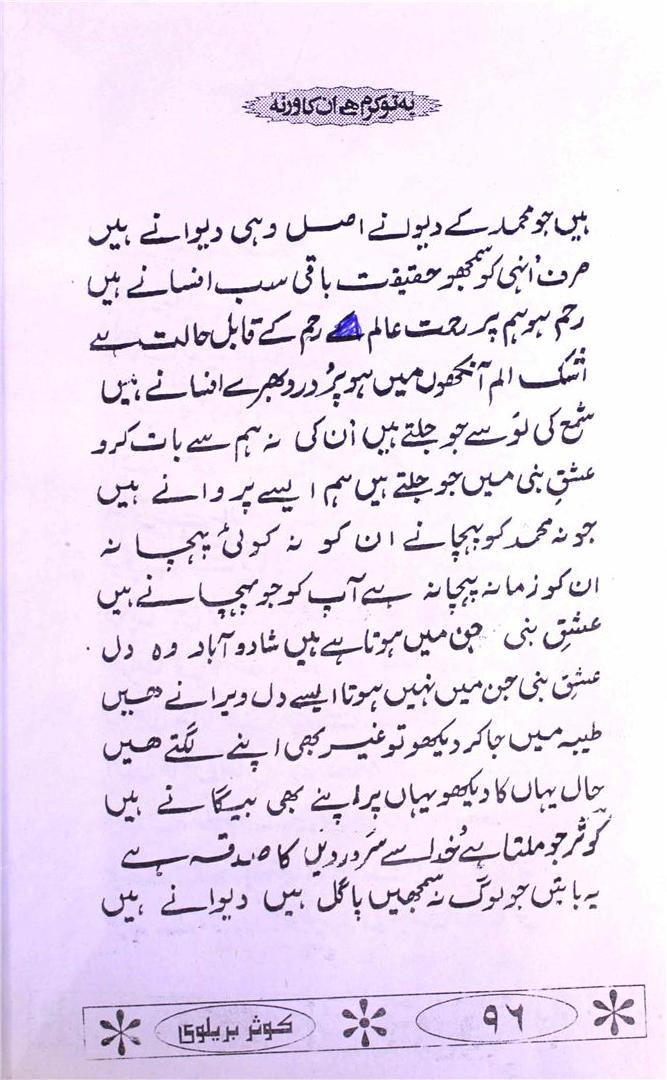 یہ تو کرم ہے ان کا ورنہ
ہیں جو محمد کے دیوانے اصل وہی دیوانے ہیں
صرف اُنہی کو سمجھو حقیقت باقی سب افسانے ہیں
رحم ہو ہم پر رحمت عالم رحم کے قابل حالت ہے
اشک الم آنکھوں میں ہو پُر درد بھرے افسانے ہیں
شمع کی لَو سے جو جلتے ہیں اُن کی نہ ہم سے بات کرو
عشقِ نبی میں جو جلتے ہیں ہم ایسے پروانے ہیں
جو نہ محمد کو پہچانے ان کو نہ کوئی پہچانا
ان کو زمانہ پہچانہ ہے آپ کو جو پہچانے ہیں
عشقِ نبی جن میں ہوتا ہے ہیں شاد و آباد وہ دل
عشقِ نبی جن میں نہیں ہوتا ایسے دل ویرانے ھیں
طیبہ میں جا کر دیکھو تو غیر بھی اپنے لگتے ھیں
حال یہاں کا دیکھو یہاں پر اپنے بھی بیگانے ہیں
کوثر جو ملتا ہے خُدا سے سَرورِ دیں کا صدقہ ہے
یہ باتیں جو لوگ نہ سمجھیں پاگل ہیں دیوانے ہیں
۹۶
کوثر بریلوی